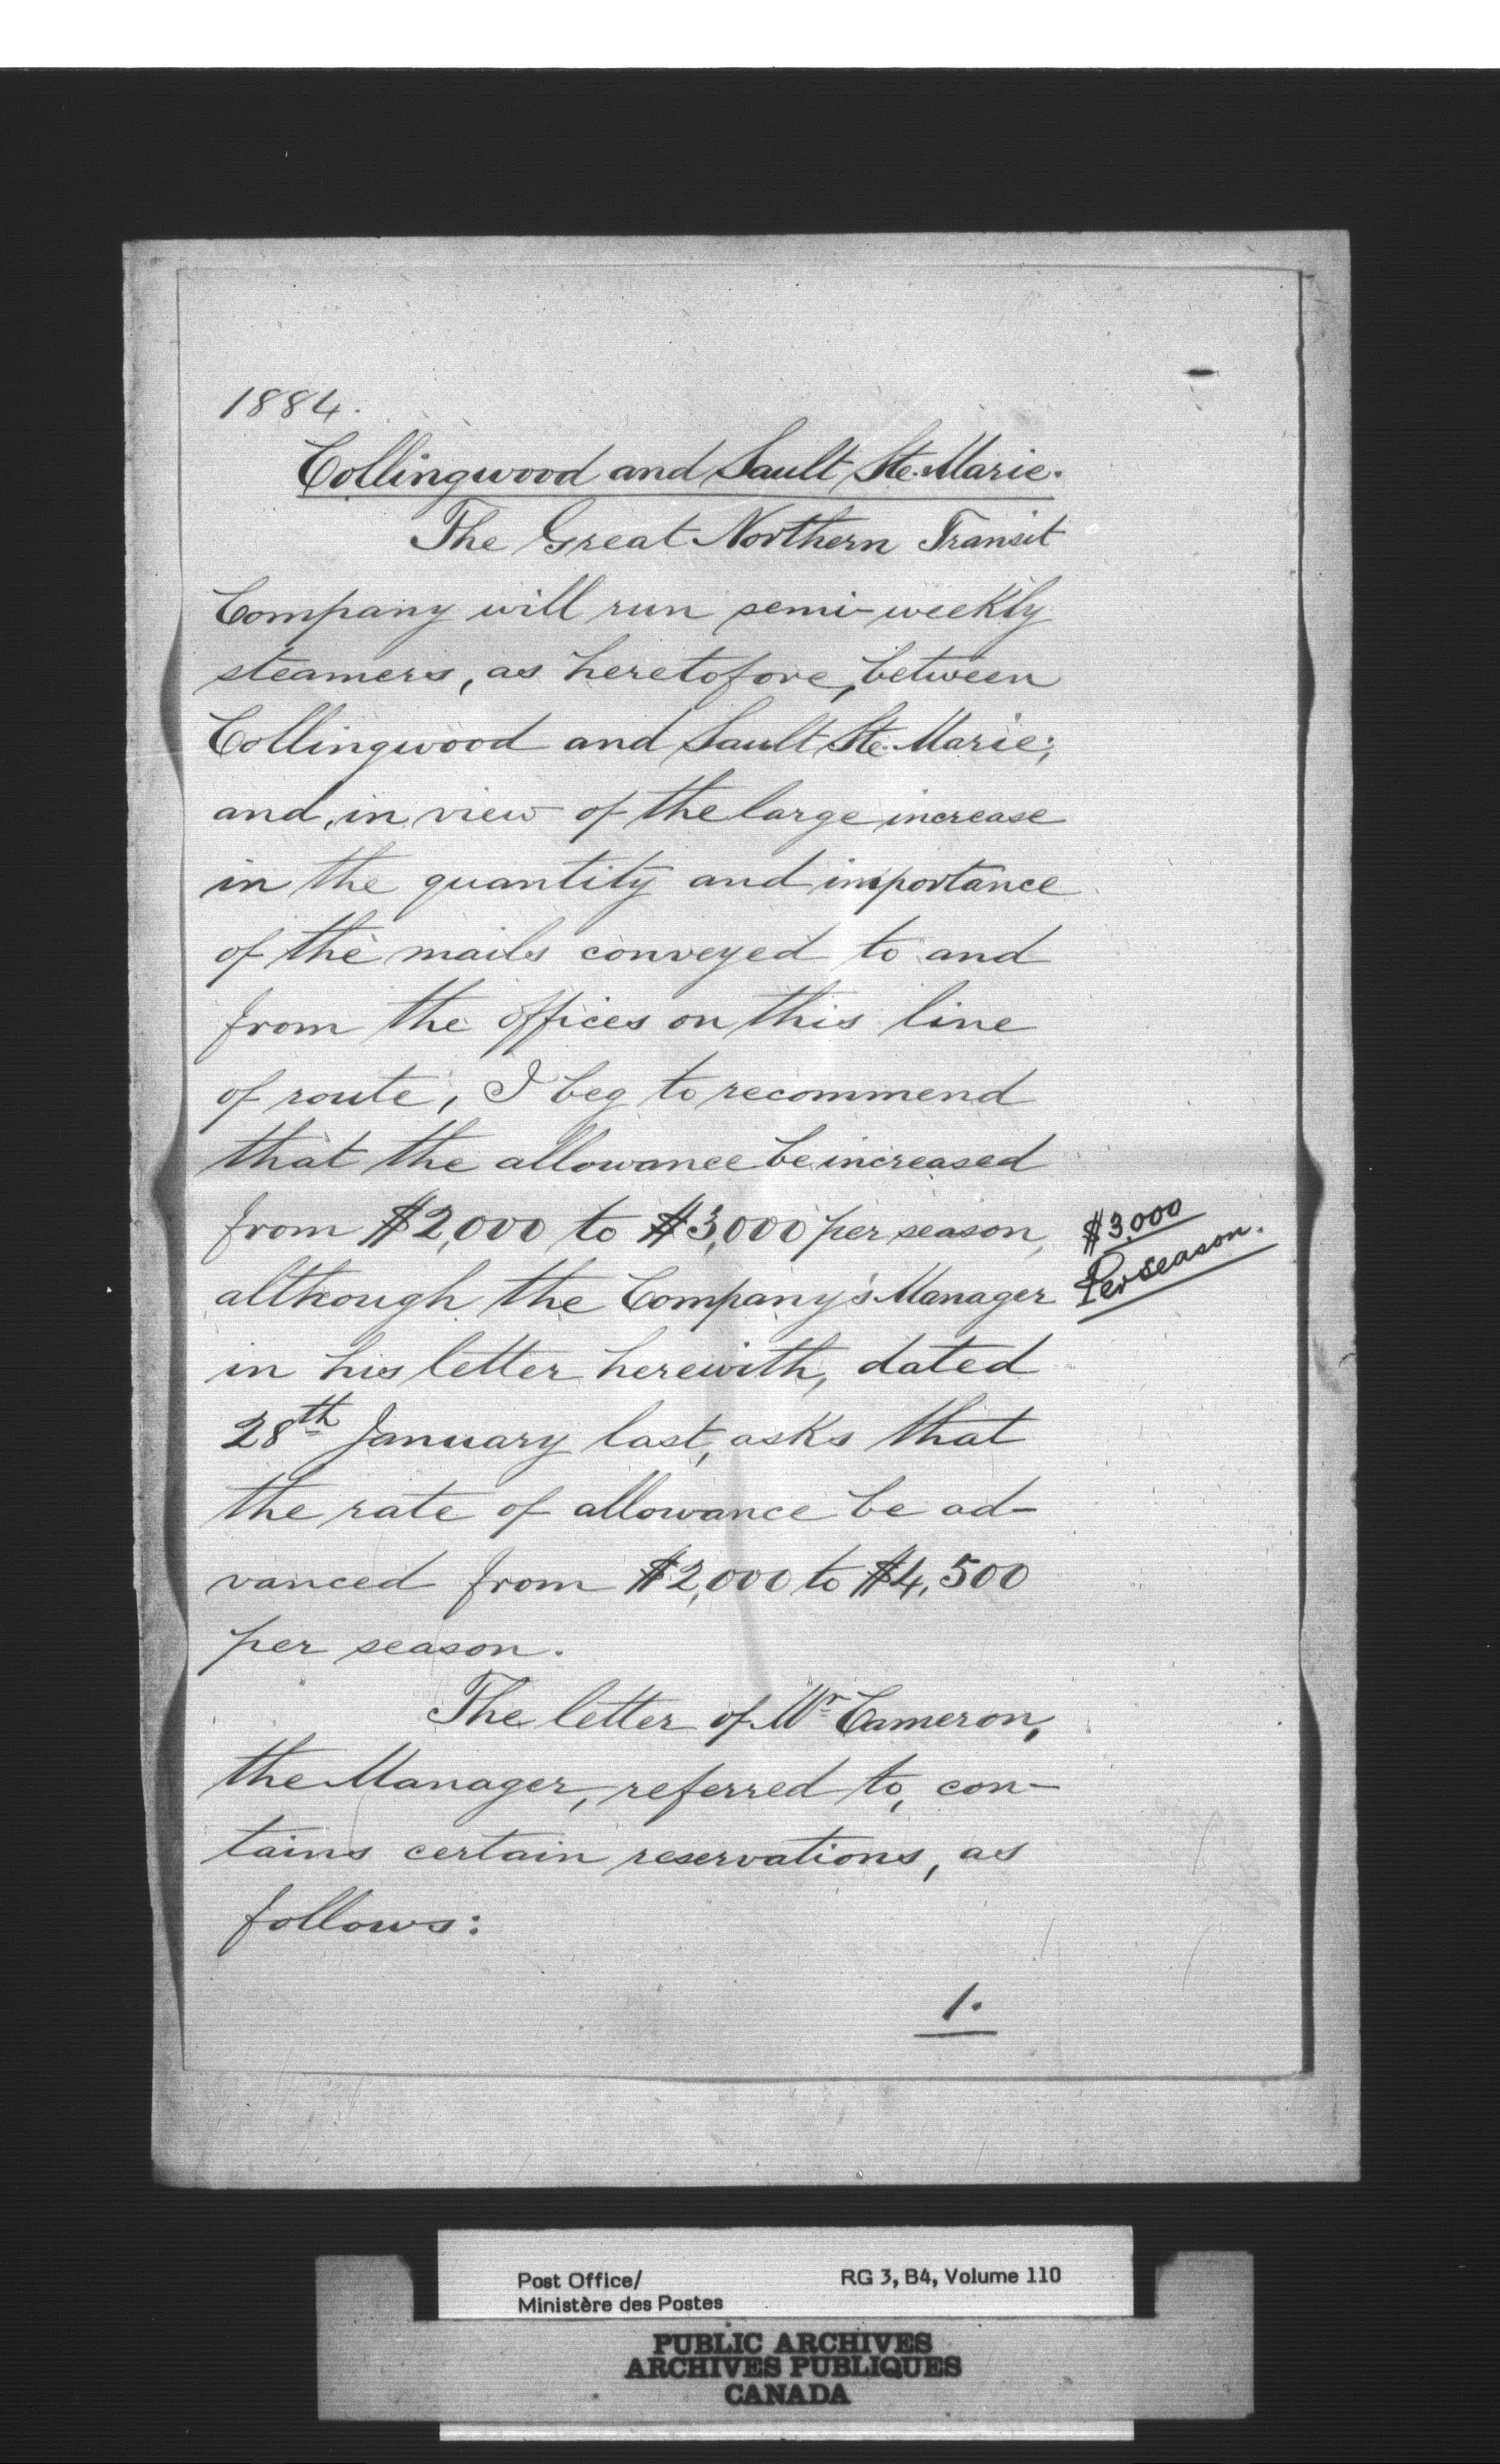 1884.
Collingwood and Sault Ste. Marie.
The Great Northern Transit
Company will run semi-weekly
steamers, as heretofore, between
Collingwood and Sault Ste. Marie;
and, in view of the large increase
in the quantity and importance
of the mails conveyed to and
from the offices on this line
of route, I beg to recommend
that the allowance be increased
from $2,000 to $3,000 per season,
$3,000
Per season.
although the Company's Manager
in his letter herewith, dated
28th January last, asks that
the rate of allowance be ad-
vanced from $2,000 to $4,500
per season.
The letter of Mr Cameron,
the Manager, referred to, con-
tains certain reservations, as
follows:
1.
Post Office/
Ministère des Postes
RG 3, B4, Volume 110
PUBLIC ARCHIVES
ARCHIVES PUBLIQUES
CANADA